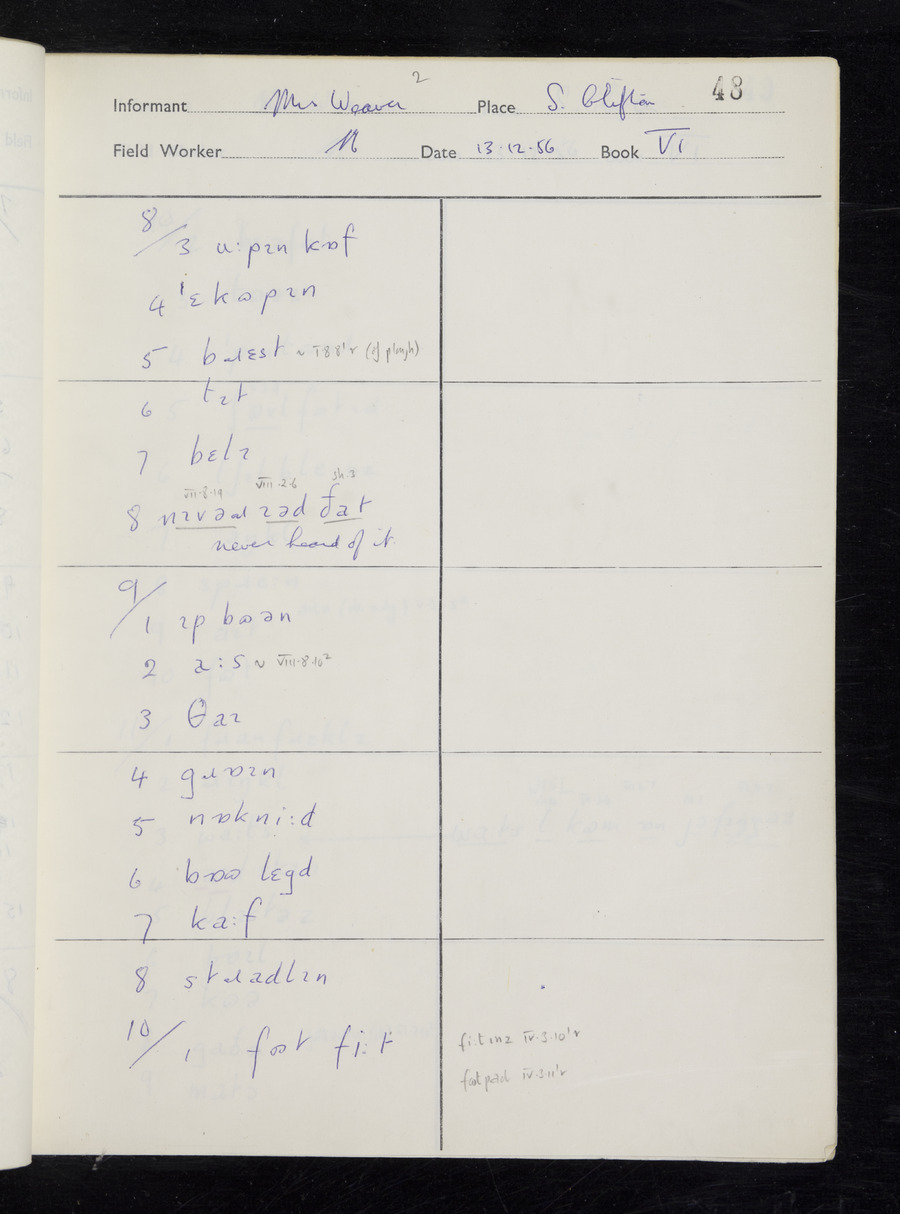 2
48
Informant Mrs Weaver Place S. Clifton
Field Worker M Date 13.12.56 Book VI
8/3 u:pɪn kɒf
4 ˈɛkɷpɪn
5 bɹɛst ~ I 8 8'r (of plough)
6 tɪt
7 bɛlɪ
VII.8.19 VIII.2.6 sh.3
8 nɪvəɹ ɪəd ðat
never heard of it.
9/1 ɪp bɷən
2 a:s ~ VIII.8.10²
3 θaɪ
4 gɹɒɪn
5 nɒkni:d
6 bɒɷ lɛgd
7 ka:f
8 stɹadlɪn
10/1 fɷt fi:t
fi:tɪnz IV.3.10'r
IV.3.11'r